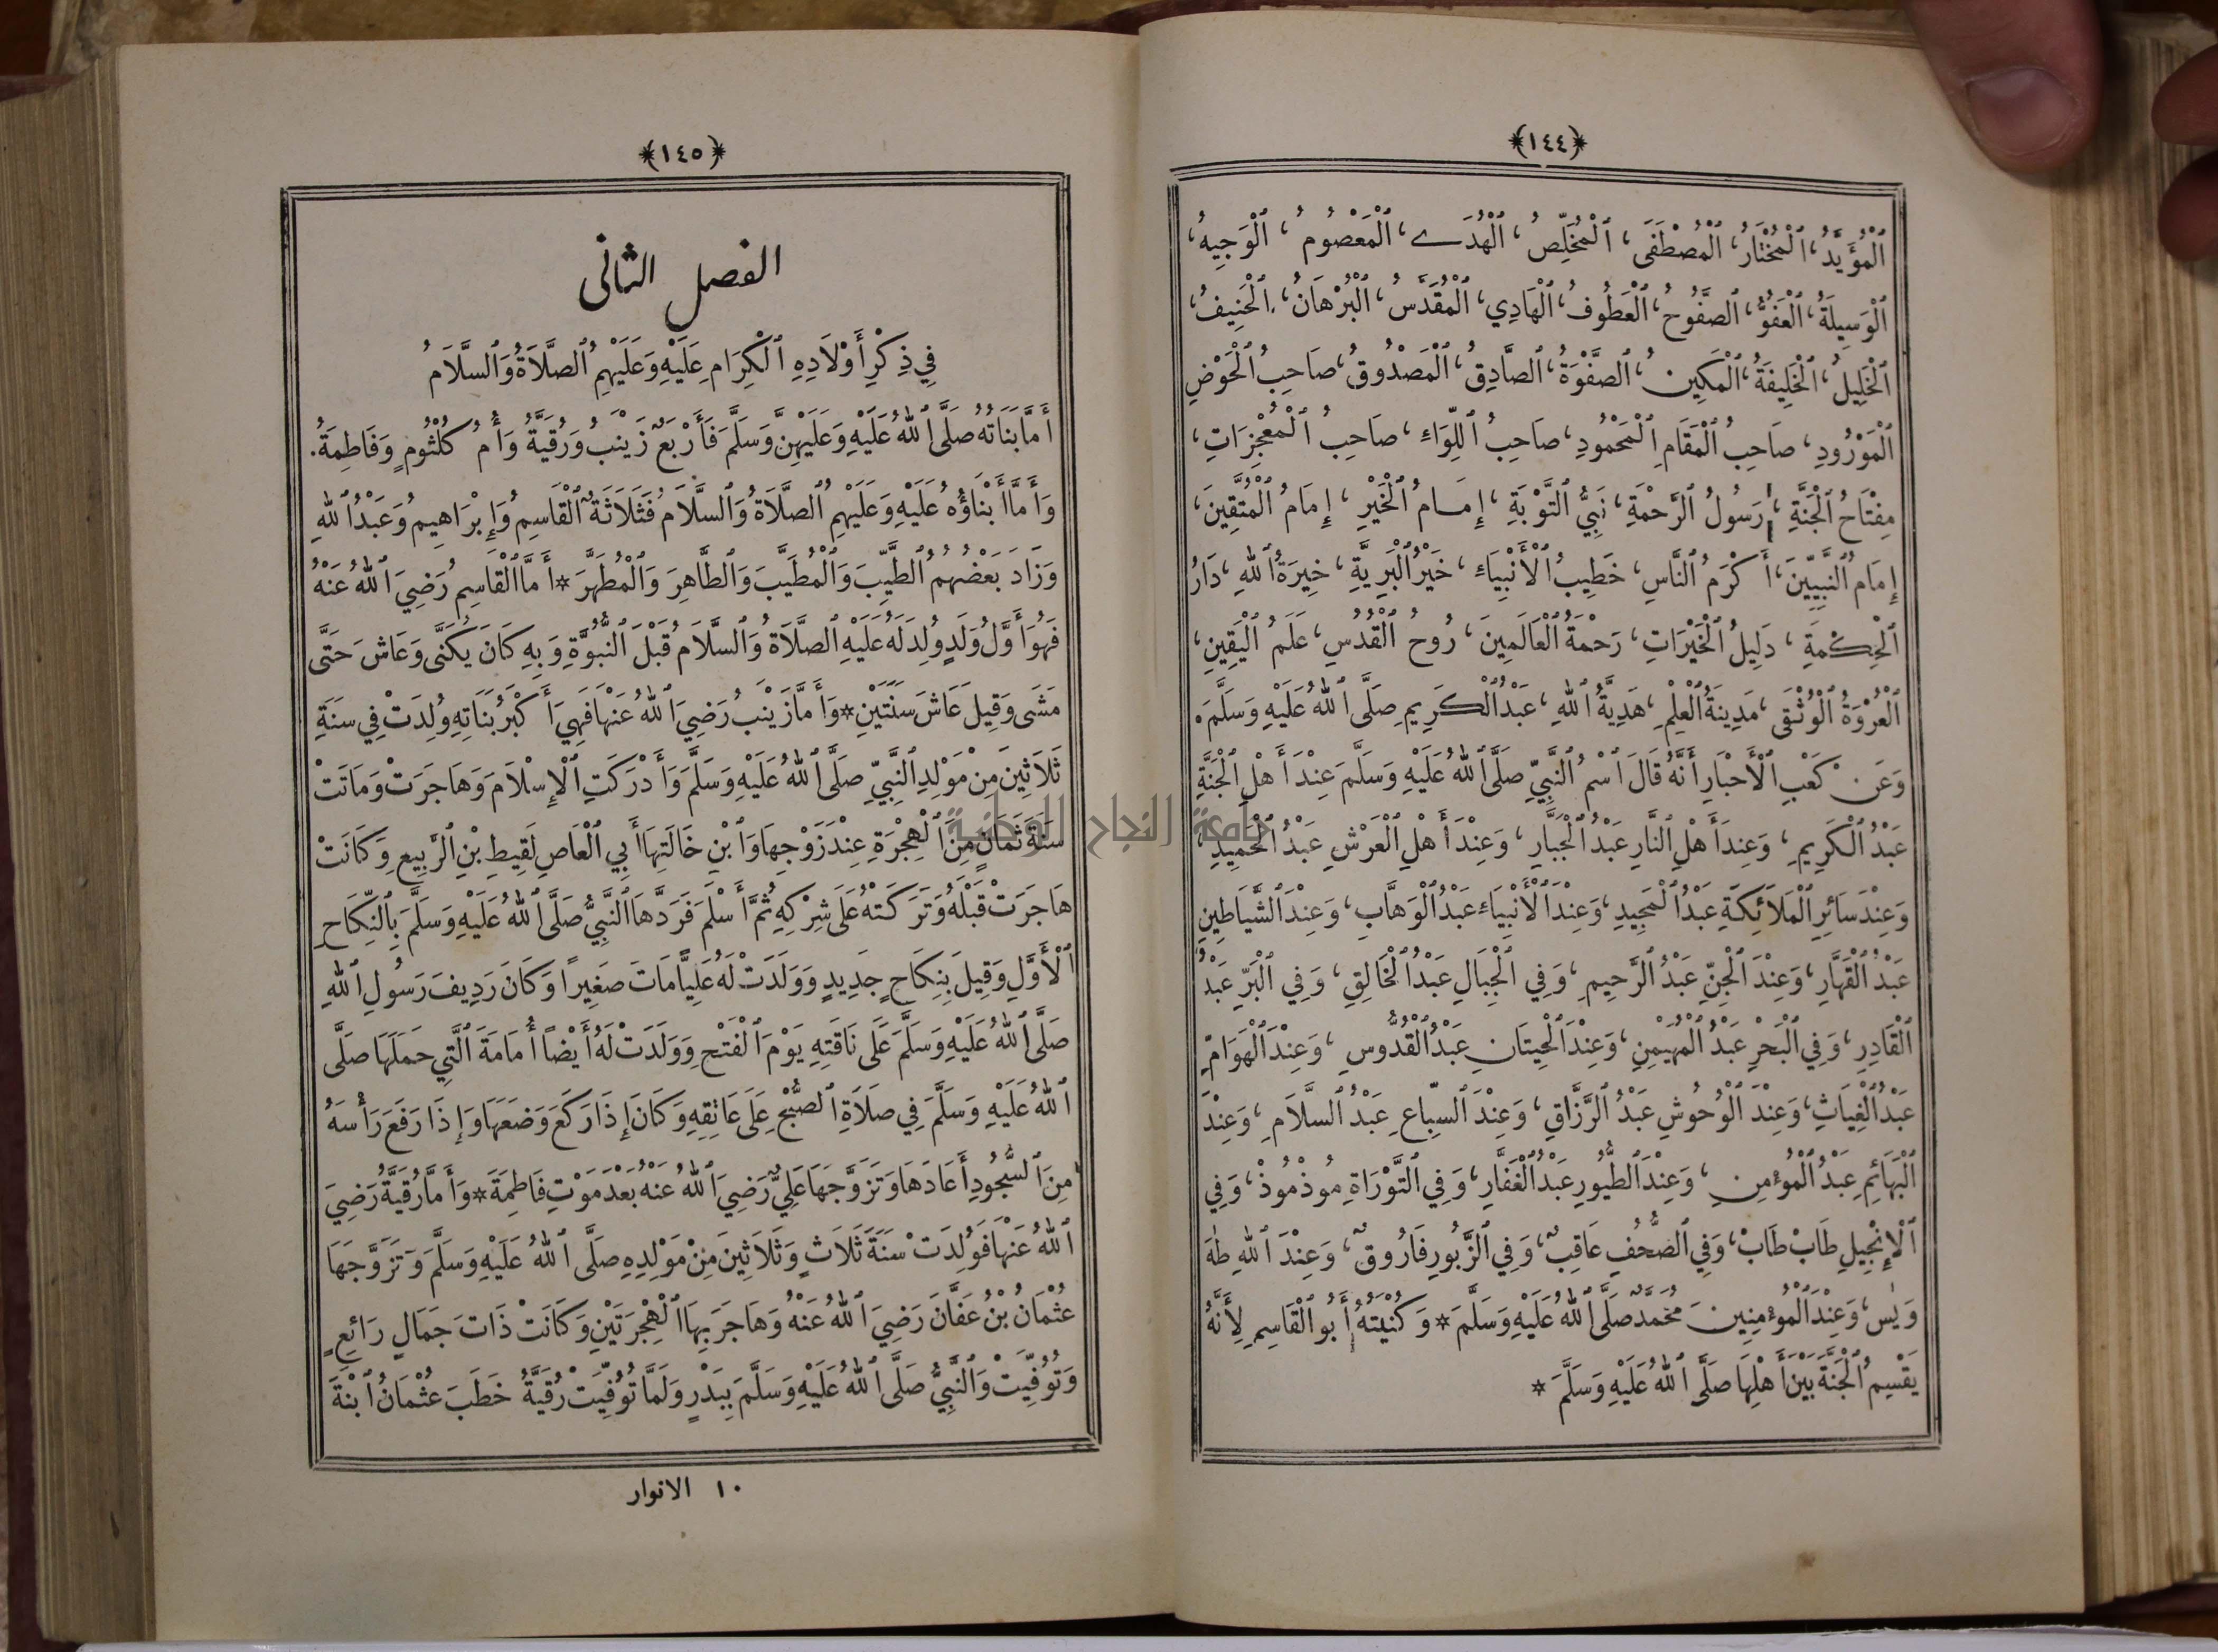 ﴿١٤٤﴾
ٱلْمُؤَيَّدُ، ٱلْمُخْتَارُ، ٱلْمُصْطَفَى، ٱلْمُخَلِّصُ، ٱلْهُدَے، ٱلْمَعْصُومُ، ٱلْوَجِيهُ،
ٱلْوَسِيلَةُ، ٱلْعَفُوُّ، ٱلصَّفُوحُ، ٱلْعَطُوفُ، ٱلْهَادِي، ٱلْمُقَدَّسُ، ٱلْبُرْهَانُ، ٱلْحَنِيفُ،
ٱلْخَلِيلُ، ٱلْخَلِيفَةُ، ٱلْمَكِينُ، ٱلصَّفْوَةُ، ٱلصَّادِقُ، ٱلْمَصْدُوقُ، صَاحِبُ ٱلْحَوْضِ
ٱلْمَوْرُودِ، صَاحِبُ ٱلْمَقَامِ ٱلْمَحْمُودِ، صَاحِبُ ٱللِّوَاءِ، صَاحِبُ ٱلْمُعْجِزَاتِ،
مِفْتَاحُ ٱلْجَنَّةِ، رَسُولُ ٱلرَّحْمَةِ، نَبِيُّ ٱلتَّوْبَةِ، إِمَامُ ٱلْخَيْرِ، إِمَامُ ٱلْمُتَّقِينَ،
إِمَامُ ٱلنَّبِيِّينَ، أَكْرَمُ ٱلنَّاسِ، خَطِيبُ ٱلْأَنْبِيَاءِ، خَيْرُ ٱلْبَرِيَّةِ، خِيرَةُ ٱللهِ، دَارُ
ٱلْحِكْمَةِ، دَلِيلُ ٱلْخَيْرَاتِ، رَحْمَةُ ٱلْعَالَمِينَ، رُوحُ ٱلْقُدُسِ، عَلَمُ ٱلْيَقِينِ،
ٱلْعُرْوَةُ ٱلْوُثْقَى، مَدِينَةُ ٱلْعِلْمِ، هَدِيَّةُ ٱللهِ، عَبْدُ ٱلْكَرِيمِ صَلَّى ٱللهُ عَلَيْهِ وَسَلَّمَ.
وَعَنْ كَعْبِ ٱلْأَحْبَارِ أَنَّهُ قَالَ ٱسْمُ ٱلنَّبِيِّ صَلَّى ٱللهُ عَلَيْهِ وَسَلَّمَ عِنْدَ أَهْلِ ٱلْجَنَّةِ
عَبْدُ ٱلْكَرِيمِ، وَعِنْدَ أَهْلِ ٱلنَّارِ عَبْدُ ٱلْجَبَّارِ، وَعِنْدَ أَهْلِ ٱلْعَرْشِ عَبْدُ ٱلْحَمِيدِ،
وَعِنْدَ سَائِرِ ٱلْمَلَائِكَةِ عَبْدُ ٱلْمَجِيدِ، وَعِنْدَ ٱلْأَنْبِيَاءِ عَبْدُ ٱلْوَهَّابِ، وَعِنْدَ ٱلشَّيَاطِينِ
عَبْدُ ٱلْقَهَّارِ، وَعِنْدَ ٱلْجِنِّ عَبْدُ ٱلرَّحِيمِ، وَفِي ٱلْجِبَالِ عَبْدُ ٱلْخَالِقِ، وَفِي ٱلْبَرِّ عَبْدُ
ٱلْقَادِرِ، وَفِي ٱلْبَحْرِ عَبْدُ ٱلْمُهَيْمِنِ، وَعِنْدَ ٱلْحِيتَانِ عَبْدُ ٱلْقُدُّوسِ، وَعِنْدَ ٱلْهَوَامِّ
عَبْدُ ٱلْغِيَاثِ، وَعِنْدَ ٱلْوُحُوشِ عَبْدُ ٱلرَّزَّاقِ، وَعِنْدَ ٱلسِّبَاعِ عَبْدُ ٱلسَّلَامِ، وَعِنْدَ
ٱلْبَهَائِمِ عَبْدُ ٱلْمُؤْمِنِ، وَعِنْدَ ٱلطُّيُورِ عَبْدُ ٱلْغَفَّارِ، وَفِي ٱلتَّوْرَاةِ مُوذْ مُوذْ، وَفِي
ٱلْإِنْجِيلِ طَابْ طَابْ، وَفِي ٱلصُّحُفِ عَاقِبٌ، وَفِي ٱلزَّبُورِ فَارُوقٌ، وَعِنْدَ ٱللهِ طٰهَ
وَيٰس، وَعِنْدَ ٱلْمُؤْمِنِينَ مُحَمَّدٌ صَلَّى ٱللهُ عَلَيْهِ وَسَلَّمَ * وَكُنْيَتُهُ أَبُو ٱلْقَاسِمِ لِأَنَّهُ
يَقْسِمُ ٱلْجَنَّةَ بَيْنَ أَهْلِهَا صَلَّى ٱللهُ عَلَيْهِ وَسَلَّمَ *
﴿١٤٥﴾
الفصل الثاني
فِي ذِكْرِ أَوْلَادِهِ ٱلْكِرَامِ عَلَيْهِ وَعَلَيْهِمُ ٱلصَّلَاةُ وَٱلسَّلَامُ
أَمَّا بَنَاتُهُ صَلَّى ٱللهُ عَلَيْهِ وَعَلَيْهِنَّ وَسَلَّمَ فَأَرْبَعٌ زَيْنَبُ وَرُقَيَّةُ وَأُمُ كُلْثُومٍ وَفَاطِمَةُ.
وَأَمَّا أَبْنَاؤُهُ عَلَيْهِ وَعَلَيْهِمُ ٱلصَّلَاةُ وَٱلسَّلَامُ فَثَلَاثَةٌ ٱلْقَاسِمُ وَإِبْرَاهِيمُ وَعَبْدُ ٱللهِ
وَزَادَ بَعْضُهُمُ ٱلطَّيِّبَ وَٱلْمُطَيَّبَ وَٱلطَّاهِرَ وَٱلْمُطَهَّرَ * أَمَّا ٱلْقَاسِمُ رَضِيَ ٱللهُ عَنْهُ
فَهُوَ أَوَّلُ وَلَدٍ وُلِدَ لَهُ عَلَيْهِ ٱلصَّلَاةُ وَٱلسَّلَامُ قَبْلَ ٱلنُّبُوَّةِ وَبِهِ كَانَ يُكَنَّى وَعَاشَ حَتَّى
مَشَى وَقِيلَ عَاشَ سَنَتَيْنِ * وَأَمَّا زَيْنَبُ رَضِيَ ٱللهُ عَنْهَا فَهِيَ أَكْبَرُ بَنَاتِهِ وُلِدَتْ فِي سَنَةِ
ثَلَاثِينَ مِنْ مَوْلِدِ ٱلنَّبِيِّ صَلَّى ٱللهُ عَلَيْهِ وَسَلَّمَ وَأَدْرَكَتِ ٱلْإِسْلَامَ وَهَاجَرَتْ وَمَاتَتْ
سَنَةَ ثَمَانٍ مِنَ ٱلْهِجْرَةِ عِنْدَ زَوْجِهَا وَٱبْنِ خَالَتِهَا أَبِي ٱلْعَاصِ لَقِيطِ بْنِ ٱلرَّبِيعِ وَكَانَتْ
هَاجَرَتْ قَبْلَهُ وَتَرَكَتْهُ عَلَى شِرْكِهِ ثُمَّ أَسْلَمَ فَرَدَّهَا ٱلنَّبِيُّ صَلَّى ٱللهُ عَلَيْهِ وَسَلَّمَ بِٱلنِّكَاحِ
ٱلْأَوَّلِ وَقِيلَ بِنِكَاحٍ جَدِيدٍ وَوَلَدَتْ لَهُ عَلِيًّا مَاتَ صَغِيرًا وَكَانَ رَدِيفَ رَسُولِ ٱللهِ
صَلَّى ٱللهُ عَلَيْهِ وَسَلَّمَ عَلَى نَاقَتِهِ يَوْمَ ٱلْفَتْحِ وَوَلَدَتْ لَهُ أَيْضًا أُمَامَةَ ٱلَّتِي حَمَلَهَا صَلَّى
ٱللهُ عَلَيْهِ وَسَلَّمَ فِي صَلَاةِ ٱلصُّبْحِ عَلَى عَاتِقِهِ وَكَانَ إِذَا رَكَعَ وَضَعَهَا وَإِذَا رَفَعَ رَأْسَهُ
مِنَ ٱلسُّجُودِ أَعَادَهَا وَتَزَوَّجَهَا عَلِيٌّ رَضِيَ ٱللهُ عَنْهُ بَعْدَ مَوْتِ فَاطِمَةَ * وَأَمَّا رُقَيَّةُ رَضِيَ
ٱللهُ عَنْهَا فَوُلِدَتْ سَنَةَ ثَلَاثٍ وَثَلَاثِينَ مِنْ مَوْلِدِهِ صَلَّى ٱللهُ عَلَيْهِ وَسَلَّمَ وَتَزَوَّجَهَا
عُثْمَانُ بْنُ عَفَّانَ رَضِيَ ٱللهُ عَنْهُ وَهَاجَرَ بِهَا ٱلْهِجْرَتَيْنِ وَكَانَتْ ذَاتَ جَمَالٍ رَائِعٍ
وَتُوُفِّيَتْ وَٱلنَّبِيُّ صَلَّى ٱللهُ عَلَيْهِ وَسَلَّمَ بِبَدْرٍ وَلَمَّا تُوُفِّيَتْ رُقَيَّةُ خَطَبَ عُثْمَانُ ٱبْنَةَ
١٠ الانوار
جامعة النجاح الوطنية